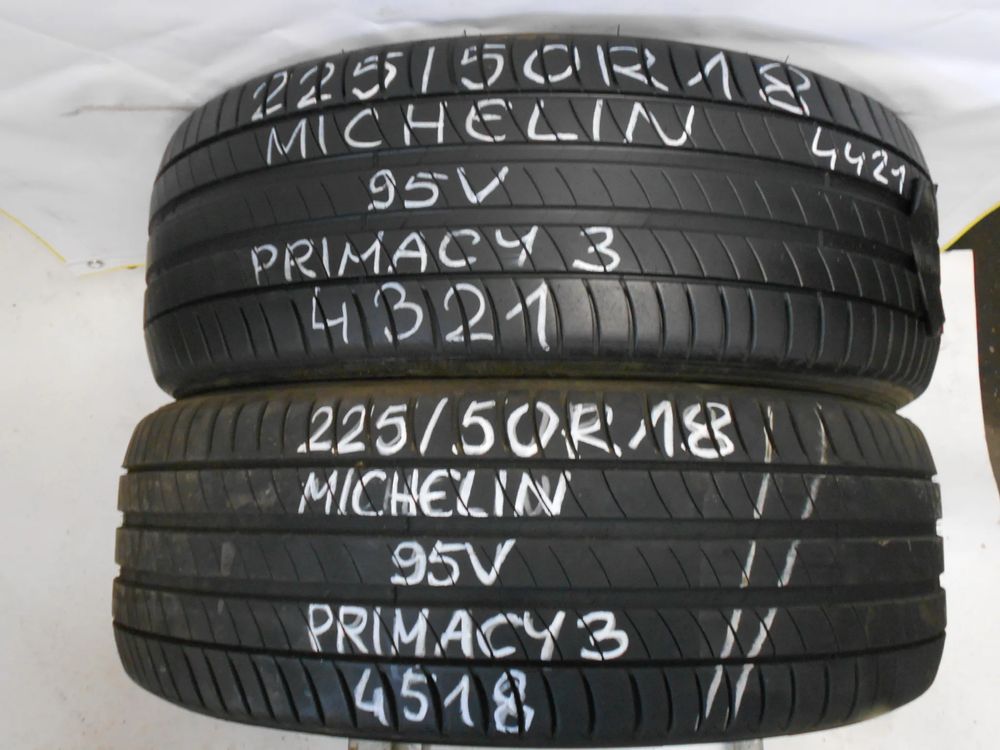 225/50R18
MICHELIN
4421
95V
PRIMACY 3
4321
225/50R18
MICHELIN
95V
PRIMACY 3
4518